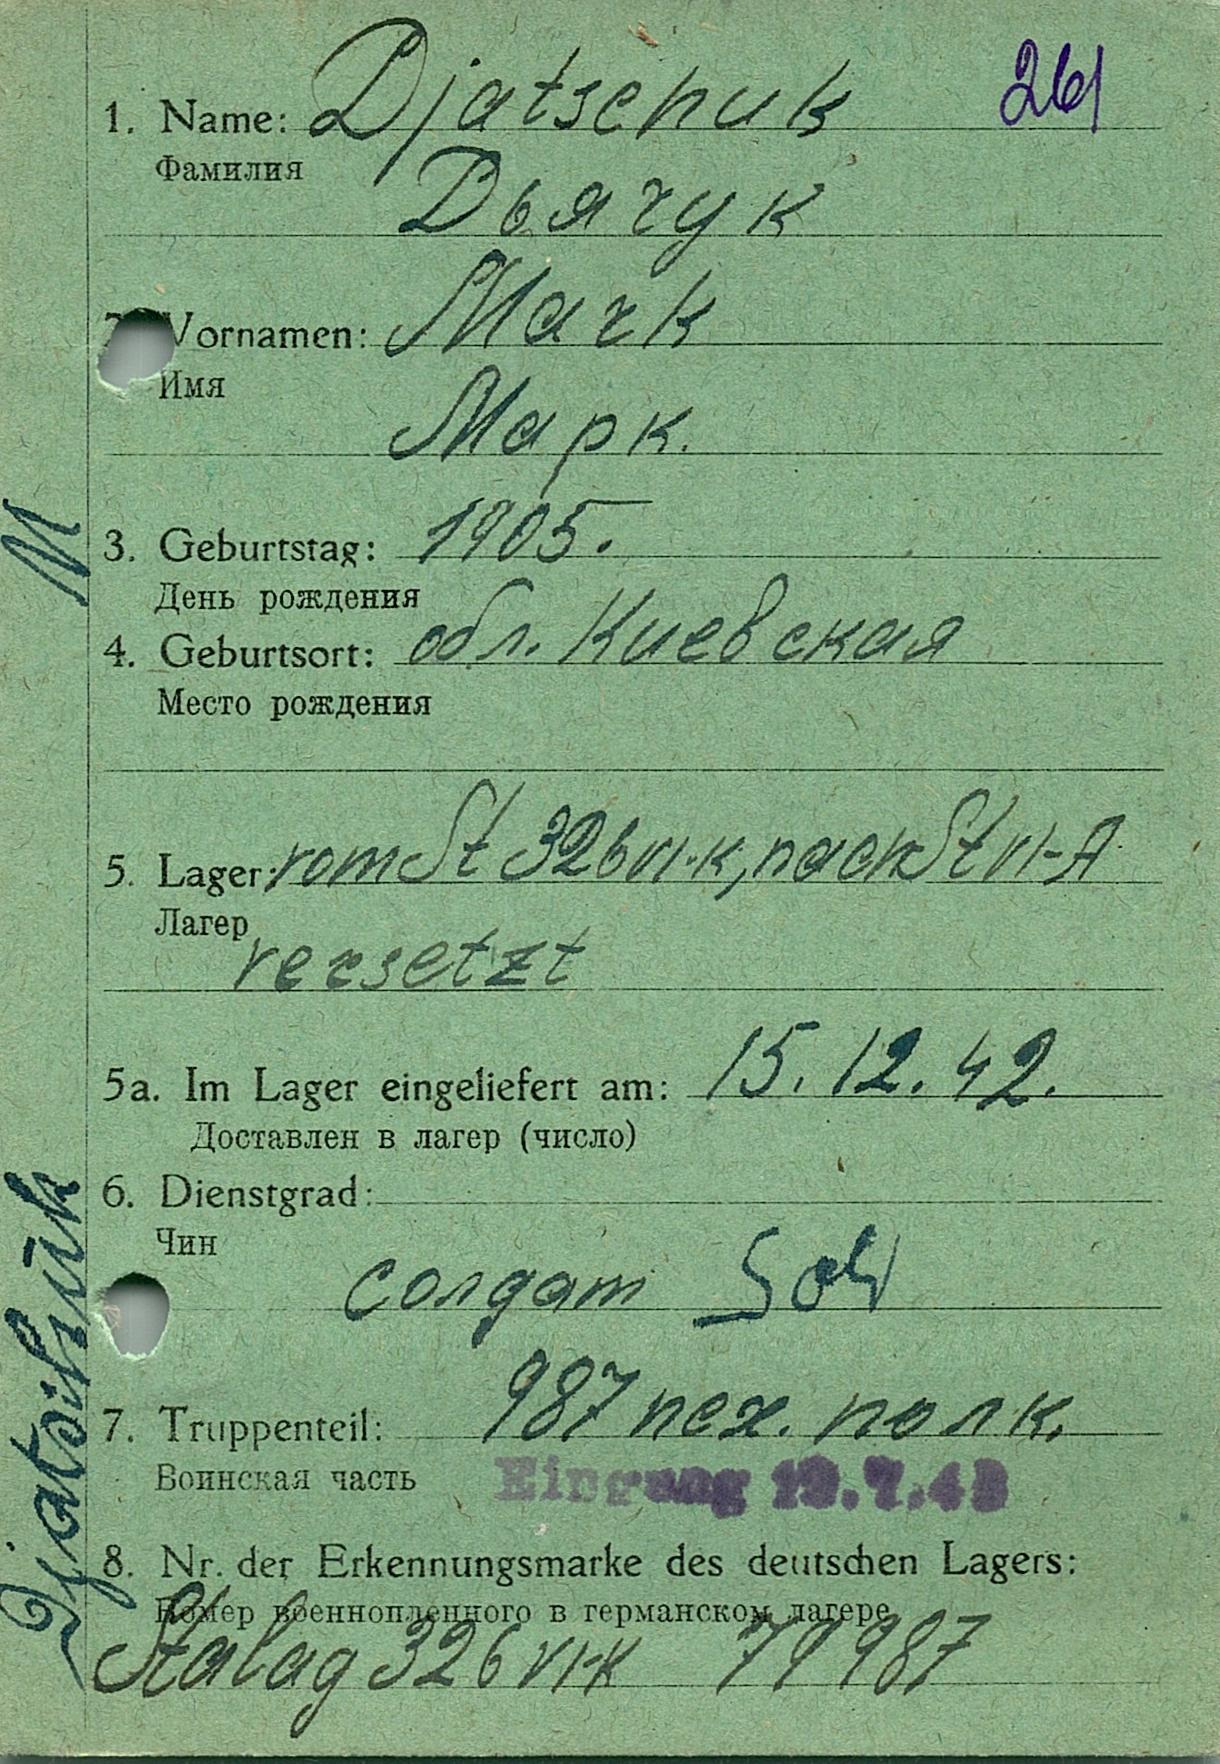 261
1. Name: Djatschuk
Фамилия
Дьячук
2. Vornamen: Mark
Имя
Марк.
3. Geburtstag: 1905.
День рождения
4. Geburtsort: обл. Киевская
Место рождения
5. Lager: vom St 326 VI-K, nach St VI-A
Лагер
versetzt
5a. Im Lager eingeliefert am: 15.12.42.
Доставлен в лагер (число)
6. Dienstgrad:
Чин
солдат Sold
7. Truppenteil: 987 пех. полк.
Воинская часть
Eingang 19.7.43
8. Nr. der Erkennungsmarke des deutschen Lagers:
Номер военнопленного в германском лагере
Stalag 326 VI-K 79987
Djatschuk M